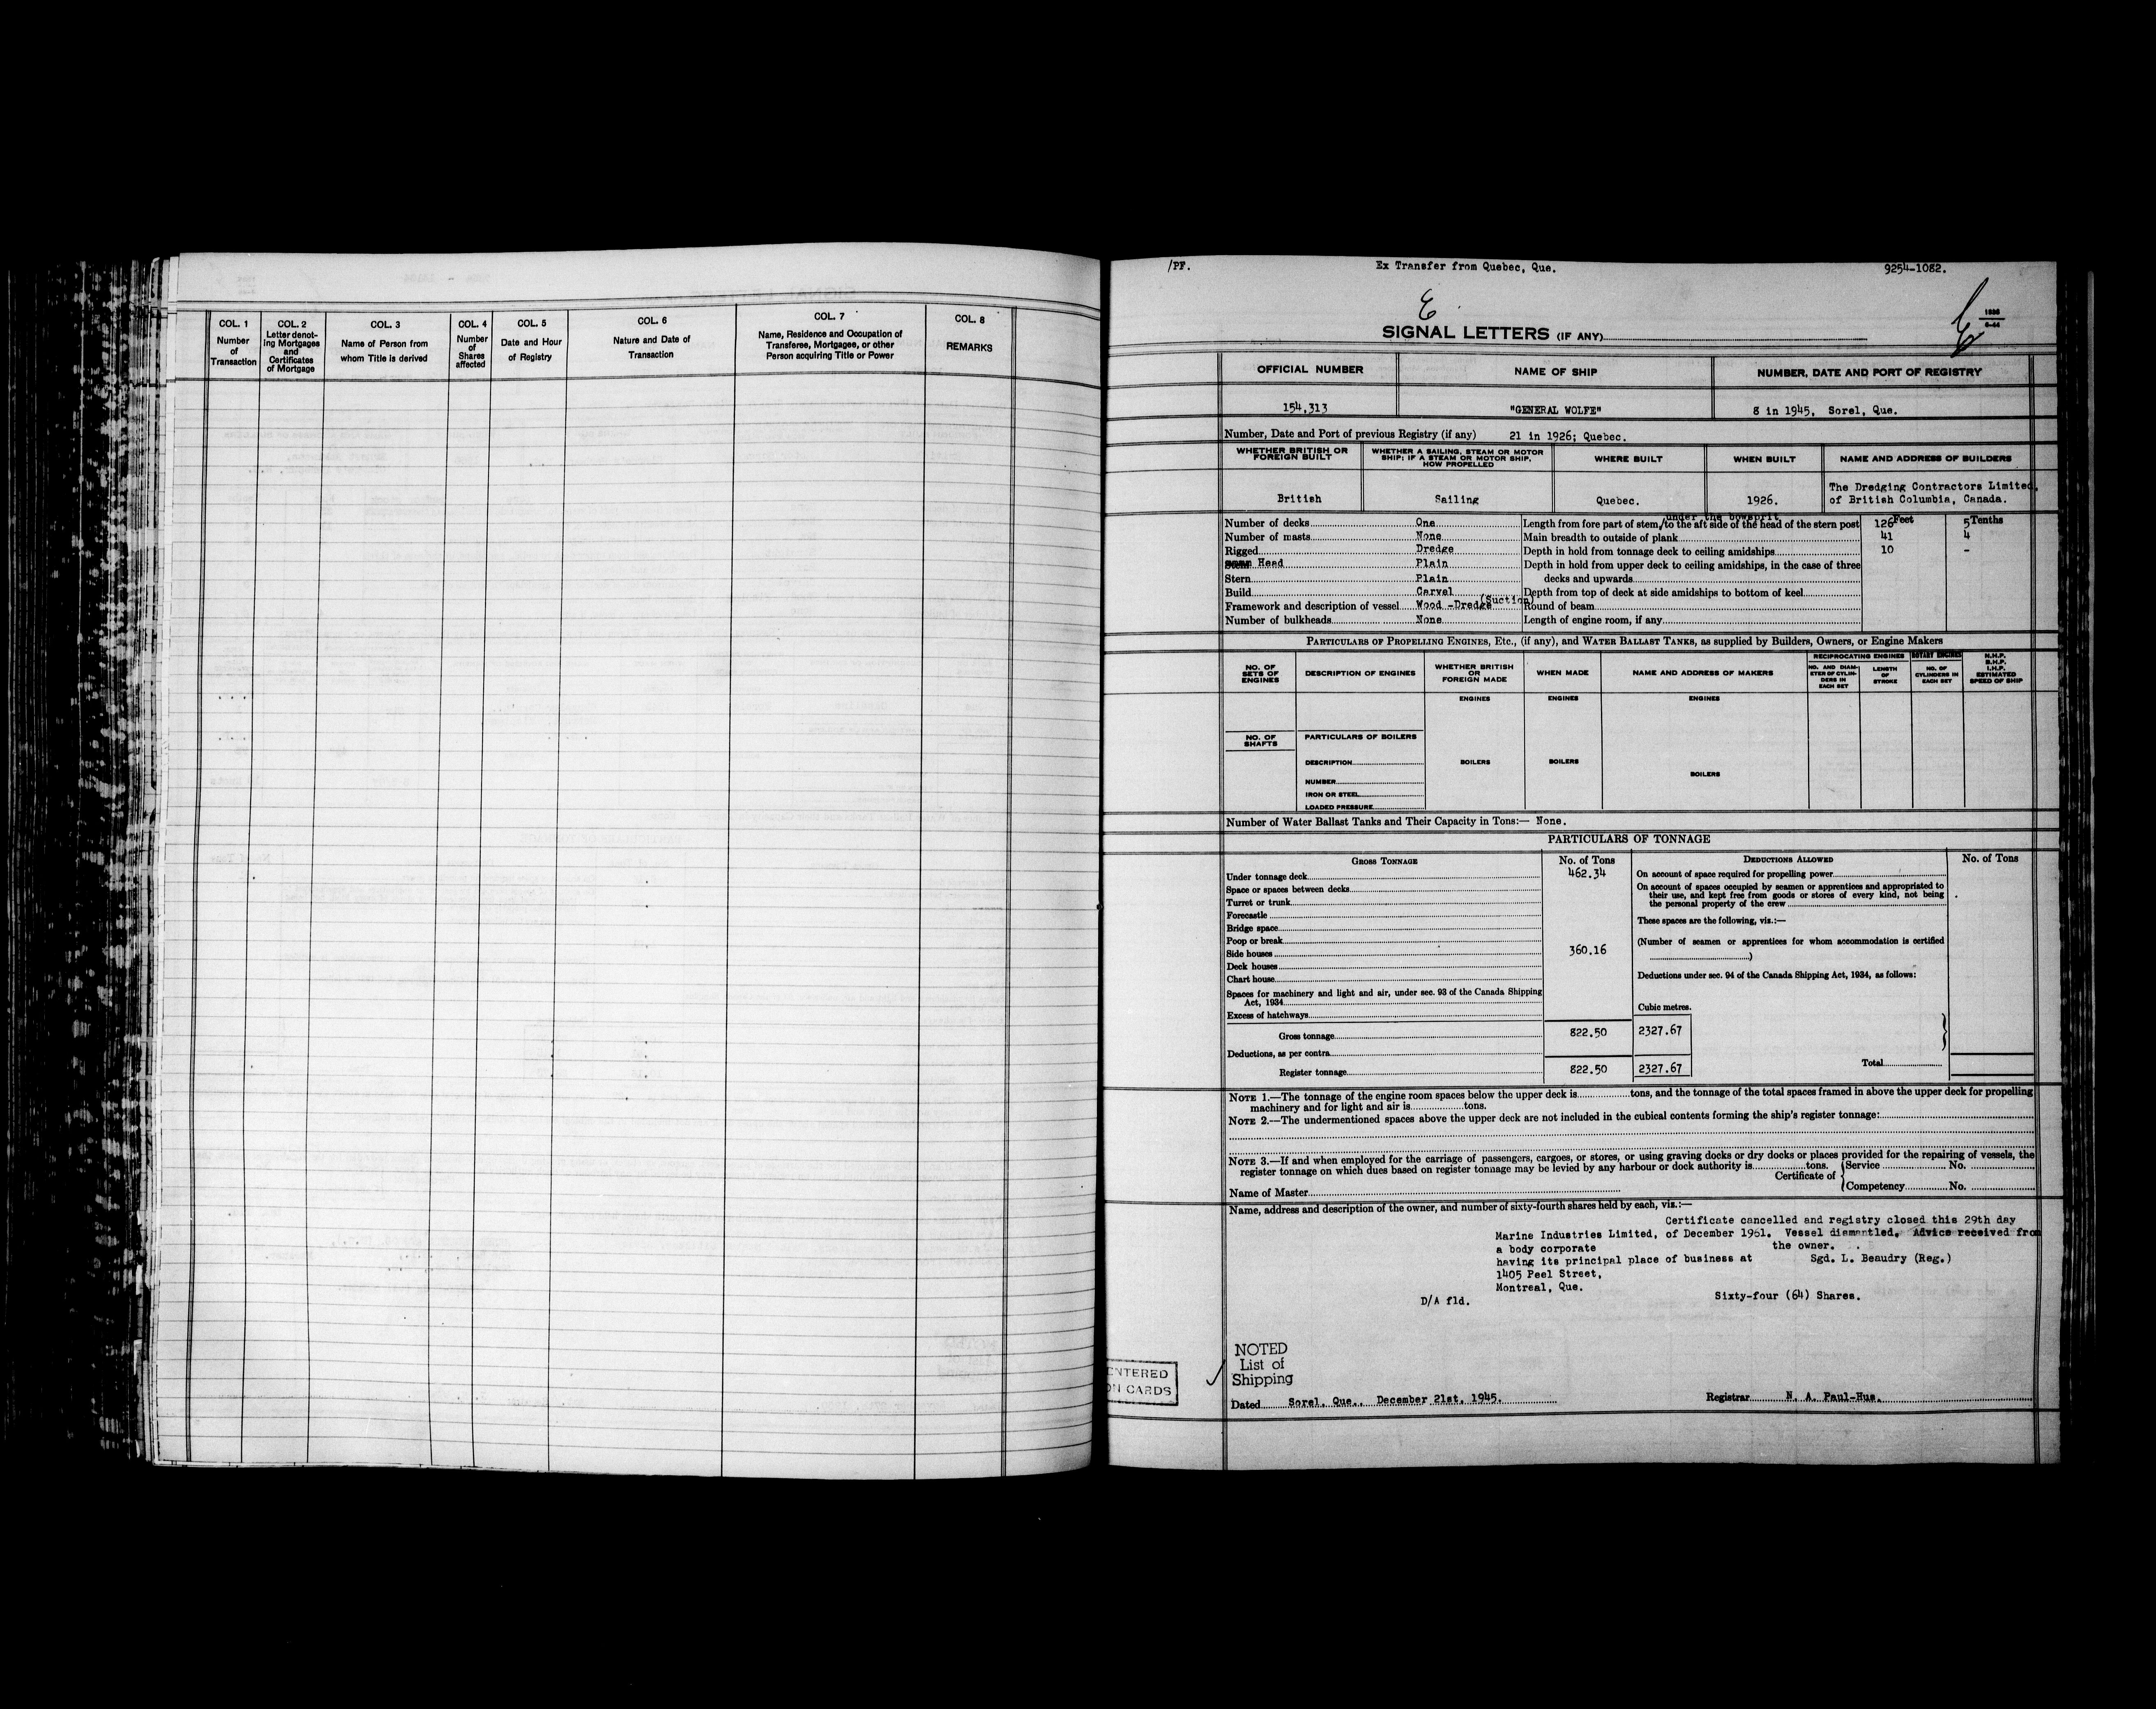 COL. 1
Number
of
Transaction
COL. 2
Letter denot-
ing Mortgages
and
Certificates
of Mortgage
COL. 3
Name of Person from
whom Title is derived
COL. 4
Number
of
Shares
affected
COL. 5
Date and Hour
of Registry
COL. 6
Nature and Date of
Transaction
COL. 7
Name, Residence and Occupation of
Transferee, Mortgagee, or other
Person acquiring Title or Power
COL. 8
REMARKS
/PF. Ex Transfer from Quebec, Que. 9254-1082.
E
SIGNAL LETTERS (IF ANY)
OFFICIAL NUMBER NAME OF SHIP NUMBER, DATE AND PORT OF REGISTRY
154,313 "GENERAL WOLFE" 8 in 1945, Sorel, Que.
Number, Date and Port of previous Registry (if any) 21 in 1926; Quebec.
WHETHER BRITISH OR
FOREIGN BUILT
WHETHER A SAILING, STEAM OR MOTOR
SHIP; IF A STEAM OR MOTOR SHIP,
HOW PROPELLED
WHERE BUILT WHEN BUILT NAME AND ADDRESS OF BUILDERS
British Sailing Quebec. 1926.
The Dredging Contractors Limited,
of British Columbia, Canada.
Number of decks One
Number of masts None
Rigged Dredge
Head Plain
Stern Plain
Build Carvel
Framework and description of vessel Wood -Dredge (Suction)
Number of bulkheads None
under the bowsprit
Length from fore part of stem,/to the aft side of the head of the stern post 126 Feet 5 Tenths
Main breadth to outside of plank 41 4
Depth in hold from tonnage deck to ceiling amidships 10 -
Depth in hold from upper deck to ceiling amidships, in the case of three
decks and upwards
Depth from top of deck at side amidships to bottom of keel
Round of beam
Length of engine room, if any
PARTICULARS OF PROPELLING ENGINES, ETC., (if any), and WATER BALLAST TANKS, as supplied by Builders, Owners, or Engine Makers
NO. OF
SETS OF
ENGINES
DESCRIPTION OF ENGINES
WHETHER BRITISH
OR
FOREIGN MADE
WHEN MADE
NAME AND ADDRESS OF MAKERS
RECIPROCATING ENGINES
NO. AND DIAM-
ETER OF CYLIN-
DERS IN
EACH SET
LENGTH
OF
STROKE
ROTARY ENGINES
NO. OF
CYLINDERS IN
EACH SET
N.H.P.
B.H.P.
I.H.P.
ESTIMATED
SPEED OF SHIP
ENGINES ENGINES ENGINES
NO. OF
SHAFTS
PARTICULARS OF BOILERS
DESCRIPTION
BOILERS BOILERS BOILERS
NUMBER
IRON OR STEEL
LOADED PRESSURE
Number of Water Ballast Tanks and Their Capacity in Tons:— None.
PARTICULARS OF TONNAGE
GROSS TONNAGE No. of Tons
Under tonnage deck 462.34
Space or spaces between decks
Turret or trunk
Forecastle
Bridge space
Poop or break
Side houses 360.16
Deck houses
Chart house
Spaces for machinery and light and air, under sec. 93 of the Canada Shipping
Act, 1934
Excess of hatchways
Gross tonnage 822.50 2327.67
Deductions, as per contra
Register tonnage 822.50 2327.67
DEDUCTIONS ALLOWED No. of Tons
On account of space required for propelling power
On account of spaces occupied by seamen or apprentices and appropriated to
their use, and kept free from goods or stores of every kind, not being
the personal property of the crew
These spaces are the following, viz.:—
(Number of seamen or apprentices for whom accommodation is certified
)
Deductions under sec. 94 of the Canada Shipping Act, 1934, as follows:
Cubic metres.
Total
NOTE 1.—The tonnage of the engine room spaces below the upper deck is tons, and the tonnage of the total spaces framed in above the upper deck for propelling
machinery and for light and air is tons.
NOTE 2.—The undermentioned spaces above the upper deck are not included in the cubical contents forming the ship's register tonnage:
NOTE 3.—If and when employed for the carriage of passengers, cargoes, or stores, or using graving docks or dry docks or places provided for the repairing of vessels, the
register tonnage on which dues based on register tonnage may be levied by any harbour or dock authority is tons.
Certificate of { Service No.
Competency No.
Name of Master
Name, address and description of the owner, and number of sixty-fourth shares held by each, viz.:—
Certificate cancelled and registry closed this 29th day
of December 1961. Vessel dismantled. Advice received from
the owner.
Sgd. L. Beaudry (Reg.)
Marine Industries Limited,
a body corporate
having its principal place of business at
1405 Peel Street,
Montreal, Que.
D/A fld. Sixty-four (64) Shares.
NOTED
List of
Shipping
ENTERED
ON CARDS
Dated Sorel, Que., December 21st, 1945. Registrar N. A. Paul-Hus.